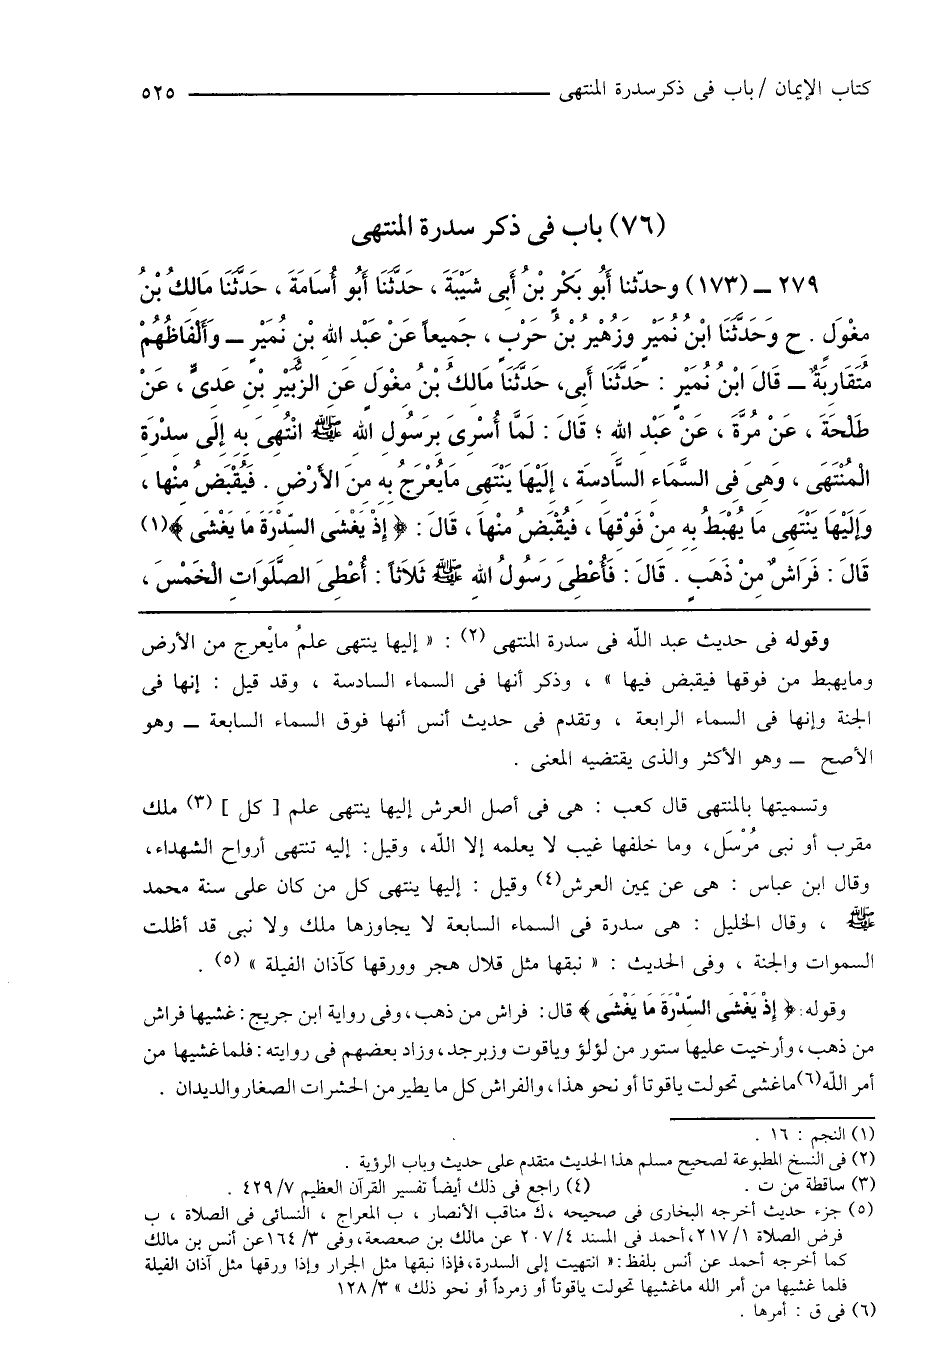 كتاب الإيمان / باب فى ذكر سدرة المنتهى ـــــــــ ٥٢٥
(٧٦) باب فى ذكر سدرة المنتهى
٢٧٩ ــ (١٧٣) وحدّثنا أَبُو بَكْرِ بْنُ أَبِى شَيْبَةَ ، حَدَّثَنَا أَبُو أُسَامَةَ ، حَدَّثَنَا مَالِكُ بْنُ
مِغْوَلٍ . ح وَحَدَّثَنَا ابْنُ نُمَيْرٍ وَزُهَيْرُ بْنُ حَرْبٍ ، جَمِيعاً عَنْ عَبْدِ اللهِ بْنِ نُمَيْرٍ ــ وَأَلْفَاظُهُمْ
مُتَقَارِبَةٌ ــ قَالَ ابْنُ نُمَيْرٍ : حَدَّثَنَا أَبِى، حَدَّثَنَا مَالِكُ بْنُ مِغْوَلٍ عَنِ الزُّبَيْرِ بْنِ عَدِىٍّ ، عَنْ
طَلْحَةَ ، عَنْ مُرَّةَ ، عَنْ عَبْدِ اللهِ ؛ قَالَ : لَمَّا أُسْرِىَ بِرَسُولِ اللهِ ﷺ انْتُهِىَ بِهِ إِلَى سِدْرَةِ
الْمُنْتَهَى ، وَهِىَ فِى السَّمَاءِ السَّادِسَةِ ، إِلَيْهَا يَنْتَهِى مَايُعْرَجُ بِهِ مِنَ الأَرْضِ . فَيُقْبَضُ مِنْها ،
وَإِلَيْهَا يَنْتَهِى مَا يُهْبَطُ بِهِ مِنْ فَوْقِهَا ، فَيُقْبَضُ مِنْهَا ، قَالَ : ﴿ إِذْ يَغْشَى السِّدْرَةَ مَا يَغْشَى ﴾(١)
قَالَ : فَرَاشٌ مِنْ ذَهَبٍ . قَالَ : فَأُعْطِىَ رَسُولُ اللهِ ﷺ ثَلاَثاً : أُعْطِىَ الصَّلَوَاتِ الْخَمْسَ ،
وقوله فى حديث عبد الله فى سدرة المنتهى (٢) : « إليها ينتهى علمُ مايْعرج من الأرض
ومايهبط من فوقها فيقبض فيها » ، وذكر أنها فى السماء السادسة ، وقد قيل : إنها فى
الجنة وإنها فى السماء الرابعة ، وتقدم فى حديث أنس أنها فوق السماء السابعة ــ وهو
الأصح ــ وهو الأكثر والذى يقتضيه المعنى .
وتسميتها بالمنتهى قال كعب : هى فى أصل العرش إليها ينتهى علم [ كل ] (٣) ملك
مقرب أو نبى مُرْسَل، وما خلفها غيب لا يعلمه إلا الله، وقيل: إليه تنتهى أرواح الشهداء،
وقال ابن عباس : هى عن يمين العرش(٤) وقيل : إليها ينتهى كل من كان على سنة محمد
ﷺ ، وقال الخليل : هى سدرة فى السماء السابعة لا يجاوزها ملك ولا نبى قد أظلت
السموات والجنة ، وفى الحديث : « نبقها مثل قلال هجر وورقها كآذان الفيلة » (٥) .
وقوله: ﴿ إِذْ يَغْشَى السِّدْرَةَ مَا يَغْشَى ﴾ قال: فراش من ذهب، وفى رواية ابن جريج : غشيها فراش
من ذهب، وأرخيت عليها ستور من لؤلؤ وياقوت وزبرجد، وزاد بعضهم فى روايته: فلما غشيها من
أمر الله(٦)ماغشى تحولت ياقوتا أو نحو هذا، والفراش كل ما يطير من الحشرات الصغار والديدان .
(١) النجم : ١٦ .
(٢) فى النسخ المطبوعة لصحيح مسلم هذا الحديث متقدم على حديث وباب الرؤية .
(٣) ساقطة من ت . (٤) راجع فى ذلك أيضاً تفسير القرآن العظيم ٧/ ٤٢٩ .
(٥) جزء حديث أخرجه البخارى فى صحيحه ،ك مناقب الأنصار ، ب المعراج ، النسائى فى الصلاة ، ب
فرض الصلاة ١/ ٢١٧، أحمد فى المسند ٤/ ٢٠٧ عن مالك بن صعصعة، وفى ٣/ ١٦٤عن أنس بن مالك
كما أخرجه أحمد عن أنس بلفظ: « انتهيت إلى السدرة، فإذا نبقها مثل الجرار وإذا ورقها مثل آذان الفيلة
فلما غشيها من أمر الله ماغشيها تحولت ياقوتاً أو زمرداً أو نحو ذلك » ٣/ ١٢٨
(٦) فى ق : أمرها .